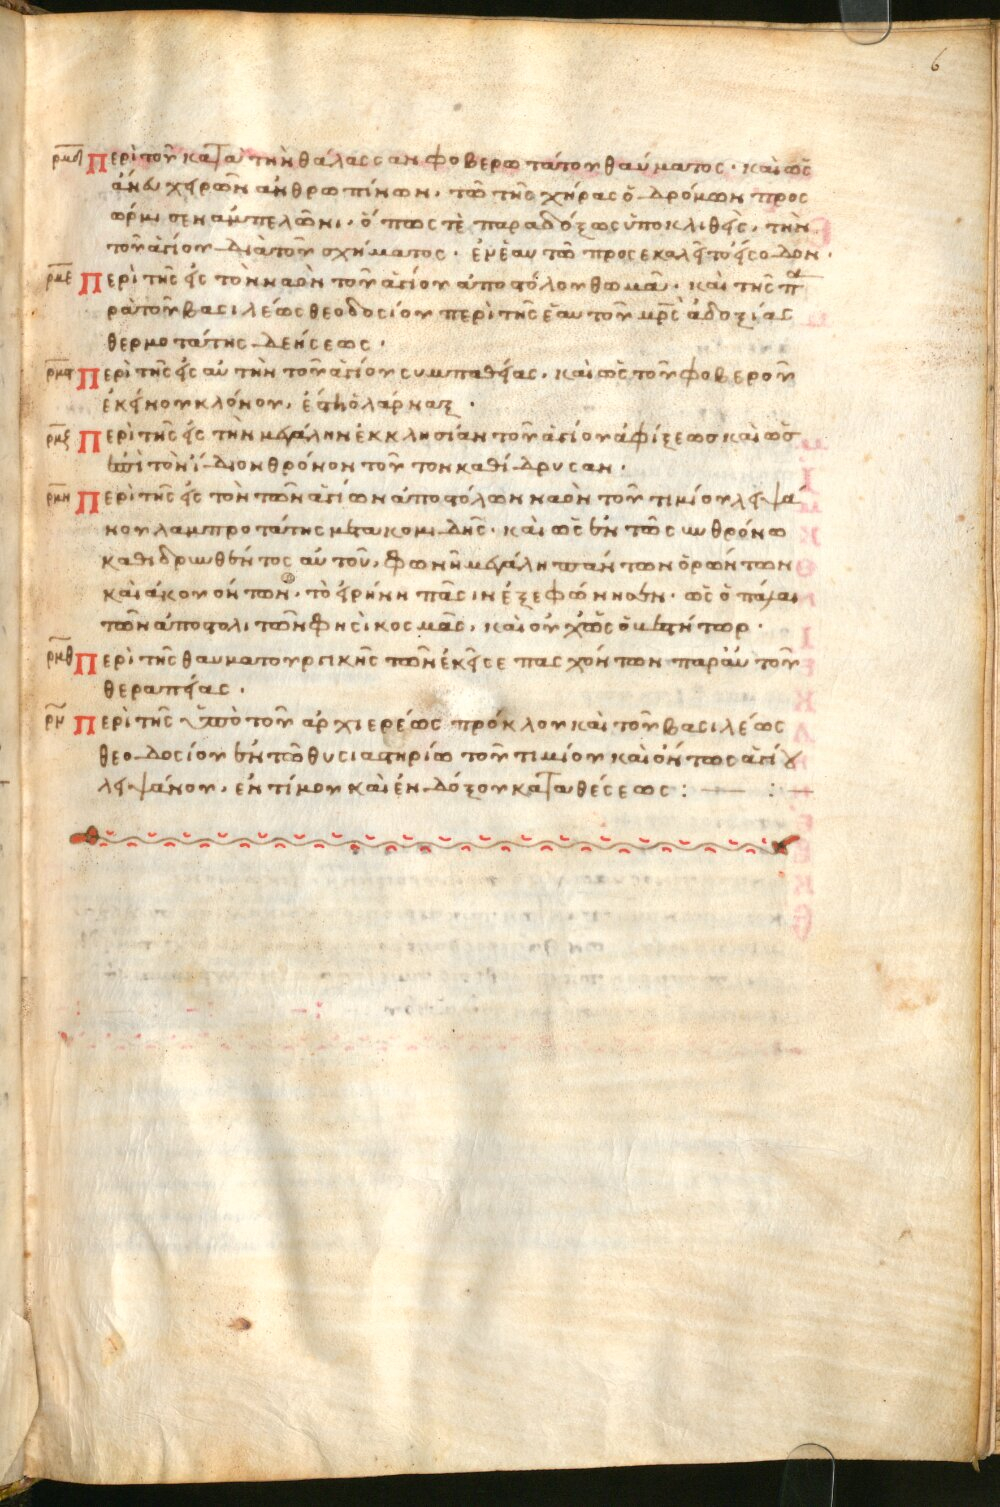 6
ρμδ Περὶ τοῦ κατὰ τὴν θάλασσαν φοβερωτάτου θαύματος· καὶ ὡς
ἄνευ χειρῶν ἀνθρωπίνων, τῶ τῆς χήρας ὁ δρόμων προς
ώρμισεν ἀμπελῶνι· ὅπως τὲ παραδόξως ὑποκλιθεὶς, τὴν
τοῦ ἁγίου διὰ τοῦ σχήματος· προσεκαλεῖτο εἴσοδον·
ρμε Περὶ τῆς εἰς τὸν ναὸν τοῦ ἁγίου ἀποστόλου θωμᾶ· καὶ τῆς π
ρὰ τοῦ βασιλέως θεοδοσίου περὶ τῆς ἑαυτοῦ μρς ἀδοξίας
θερμοτάτης δεήσεως·
ρμϛ Περὶ τῆς εἰς αὐτὴν τοῦ ἁγίου συμπαθείας, καὶ ὡς τοῦ φοβεροῦ
ἐκείνου κλόνου, ἔστη ὁ λάρναξ·
ρμζ Περὶ τῆς εἰς τὴν μεγάλην ἐκκλησίαν τοῦ ἁγίου ἀφίξεως καὶ ὡς
ἐπὶ τὸν ἴδιον θρόνον τοῦτον καθίδρυσαν·
ρμη Περὶ τῆς εἰς τὸν τῶν ἁγίων ἀποστόλων ναὸν τοῦ τιμίου λειψά
νου λαμπροτάτης μετακομιδῆς· καὶ ὡς ἐν τῶ συνθρόνω
καθιδρυνθέντος αὐτοῦ, φωνῆ μεγάλη πάντων ὁρώντων
καὶ ἀκουόντων· τὸ εἰρήνη πᾶσιν ἐξεφώνησεν· ὡς ὁ πάλαι
τῶν ἀποστόλων
ρμθ Περὶ τῆς θαυματουργικῆς τῶν ἐκεῖσε πασχόντων παρ' αὐτοῦ
θεραπείας·
ρν Περὶ τῆς ὑπὸ τοῦ ἀρχιερέως πρόκλου καὶ τοῦ βασιλέως
θεοδοσίου ἐν τῶ θυσιαστηρίω τοῦ τιμίου καὶ ὄντως ἁγίου
λειψάνου, ἐντίμου καὶ ἐνδόξου καταθέσεως :